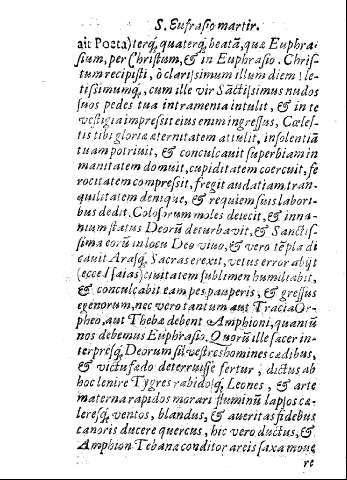 S. Eufrasio martir.
ait Poeta) terq́, quaterq́, beatã, quæ Euphra-
sium, per Christum, & in Euphrasio. Chris-
tum recipisti, ò clarissimum illum diem! le-
tissimumq́, cum ille vir Sãctissimus nudos
suos pedes tua intramenia intulit, & in te
vestigia impressit eius enim ingressus, Cœles-
tis tibi gloriæ æternitatem attulit, insolentiã
tuam potriuit, & conculcauit superbiam in
manitatem domuit, cupiditatem coercuit, fe
rocitatem compressit, fregit audatiam, tran-
quilitatem denique, & requiem suis labori-
bus dedit. Colosorum moles deiecit, & inna-
nium status Deorũ deturbavit, & Sanctis-
sima eorũ in locu Deo viuo, & vero tẽpla di
cauit Arasq́, Sacras erexit, vetus error abijt
(ecce Isaias) ciuitatem sublimen humiliabit,
& conculcabit eam pes pauperis, & gressus
egenorum, nec vero tantum aut Tracia Or-
pheo, aut Thebæ debent Amphioni, quantũ
nos debemus Euphrasio. Quorũ ille sacer in-
terpresq́, Deorum silvestres homines cædibus,
& victu fædo deterruisse fertur, dictus ab
hoc lenire Tygres rabidosq́, Leones, & arte
materna rapidos morari fluminũ lapsos ce-
leresq́, ventos, blandus, & aueritas fidebus
canoris ducere quercus, hic vero ductus, &
Amphion Tebanæ conditor arcis saxa moue
re